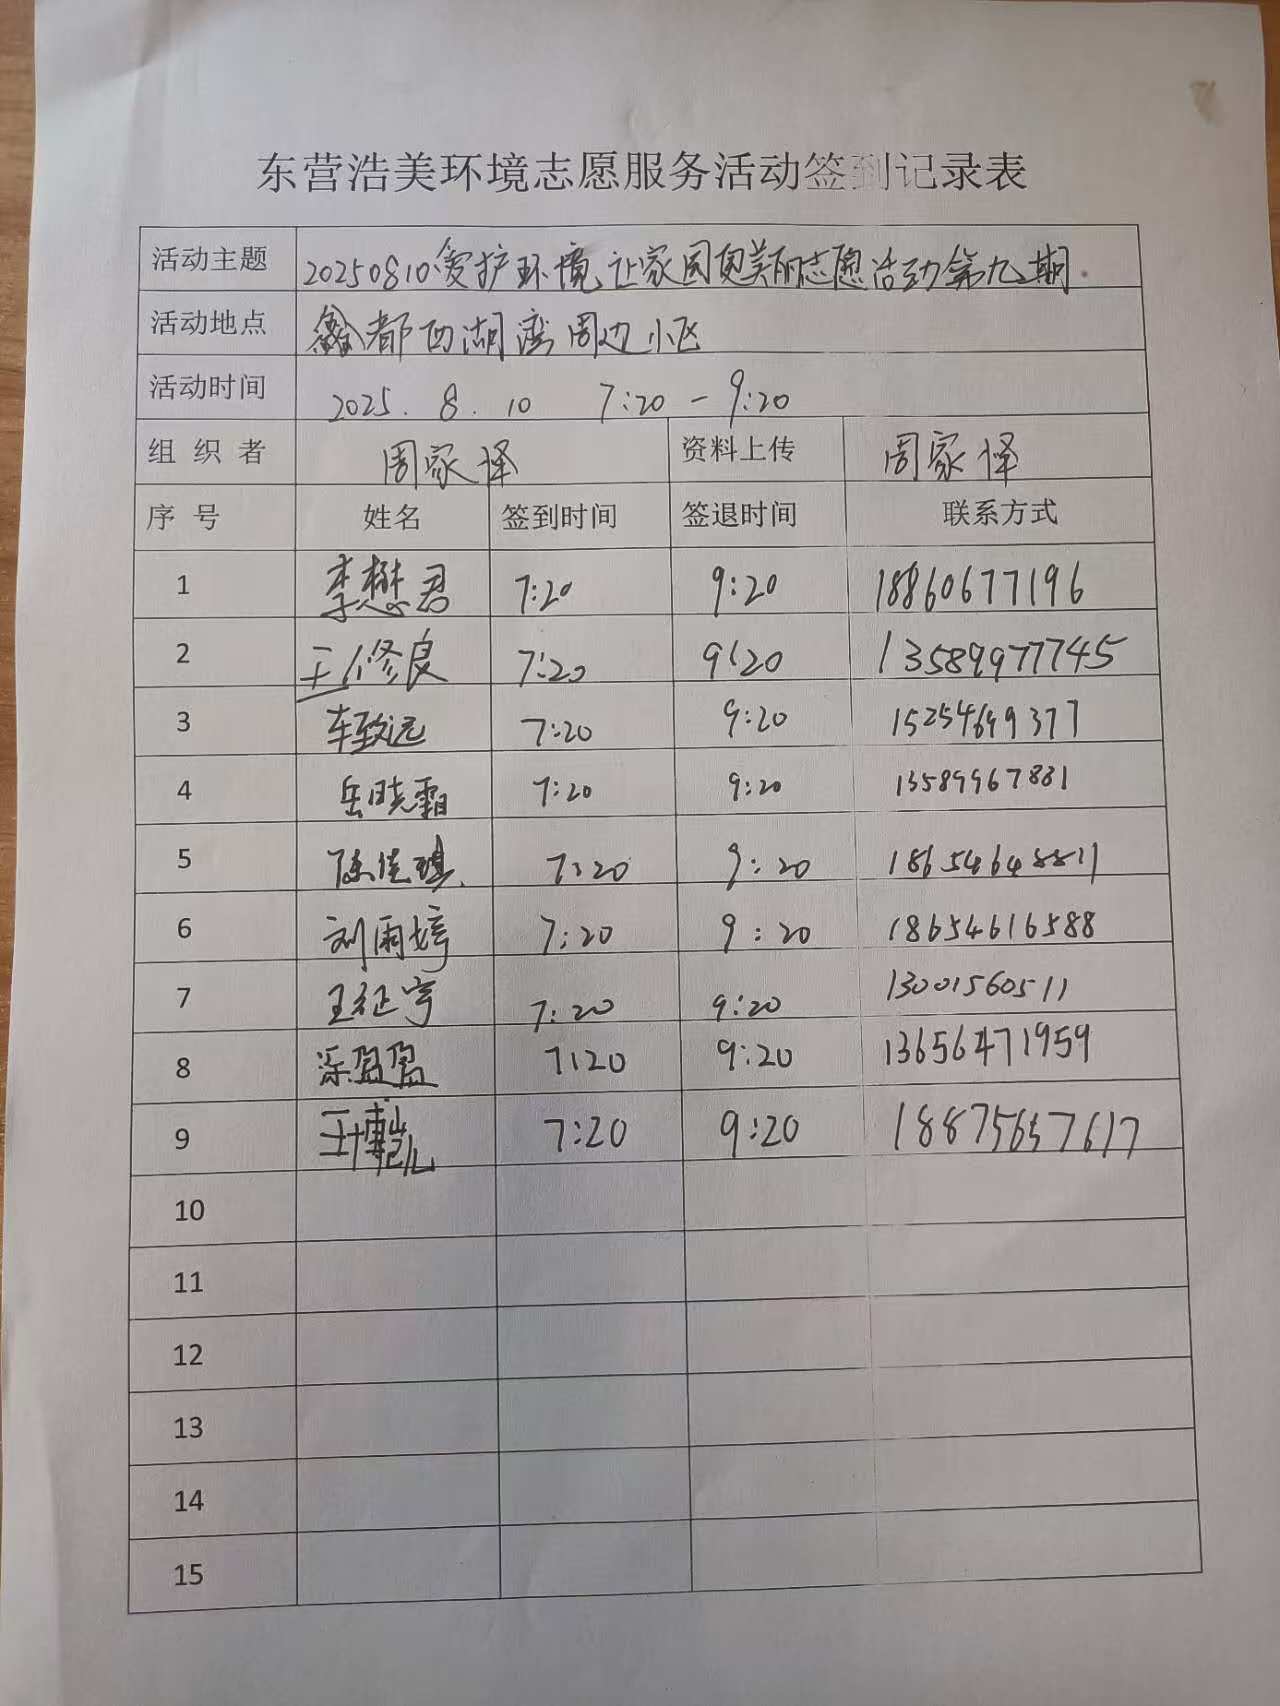 东营浩美环境志愿服务活动签到记录表
活动主题 20250810爱护环境,让家园更美丽志愿活动第九期.
活动地点 鑫都西湖湾周边小区
活动时间 2025.8.10 7:20-9:20
组织者 周家怿 资料上传 周家怿
序号 姓名 签到时间 签退时间 联系方式
1 李懋君 7:20 9:20 18860677196
2 王修良 7:20 9:20 13589977745
3 车致远 7:20 9:20 15254699377
4 岳晓霜 7:20 9:20 13589967831
5 陈佳琪 7:20 9:20 18654648811
6 刘雨婷 7:20 9:20 18654616588
7 王征宇 7:20 9:20 13001560511
8 盈盈 7:20 9:20 13656471959
9 王博凯 7:20 9:20 18875657617
10
11
12
13
14
15